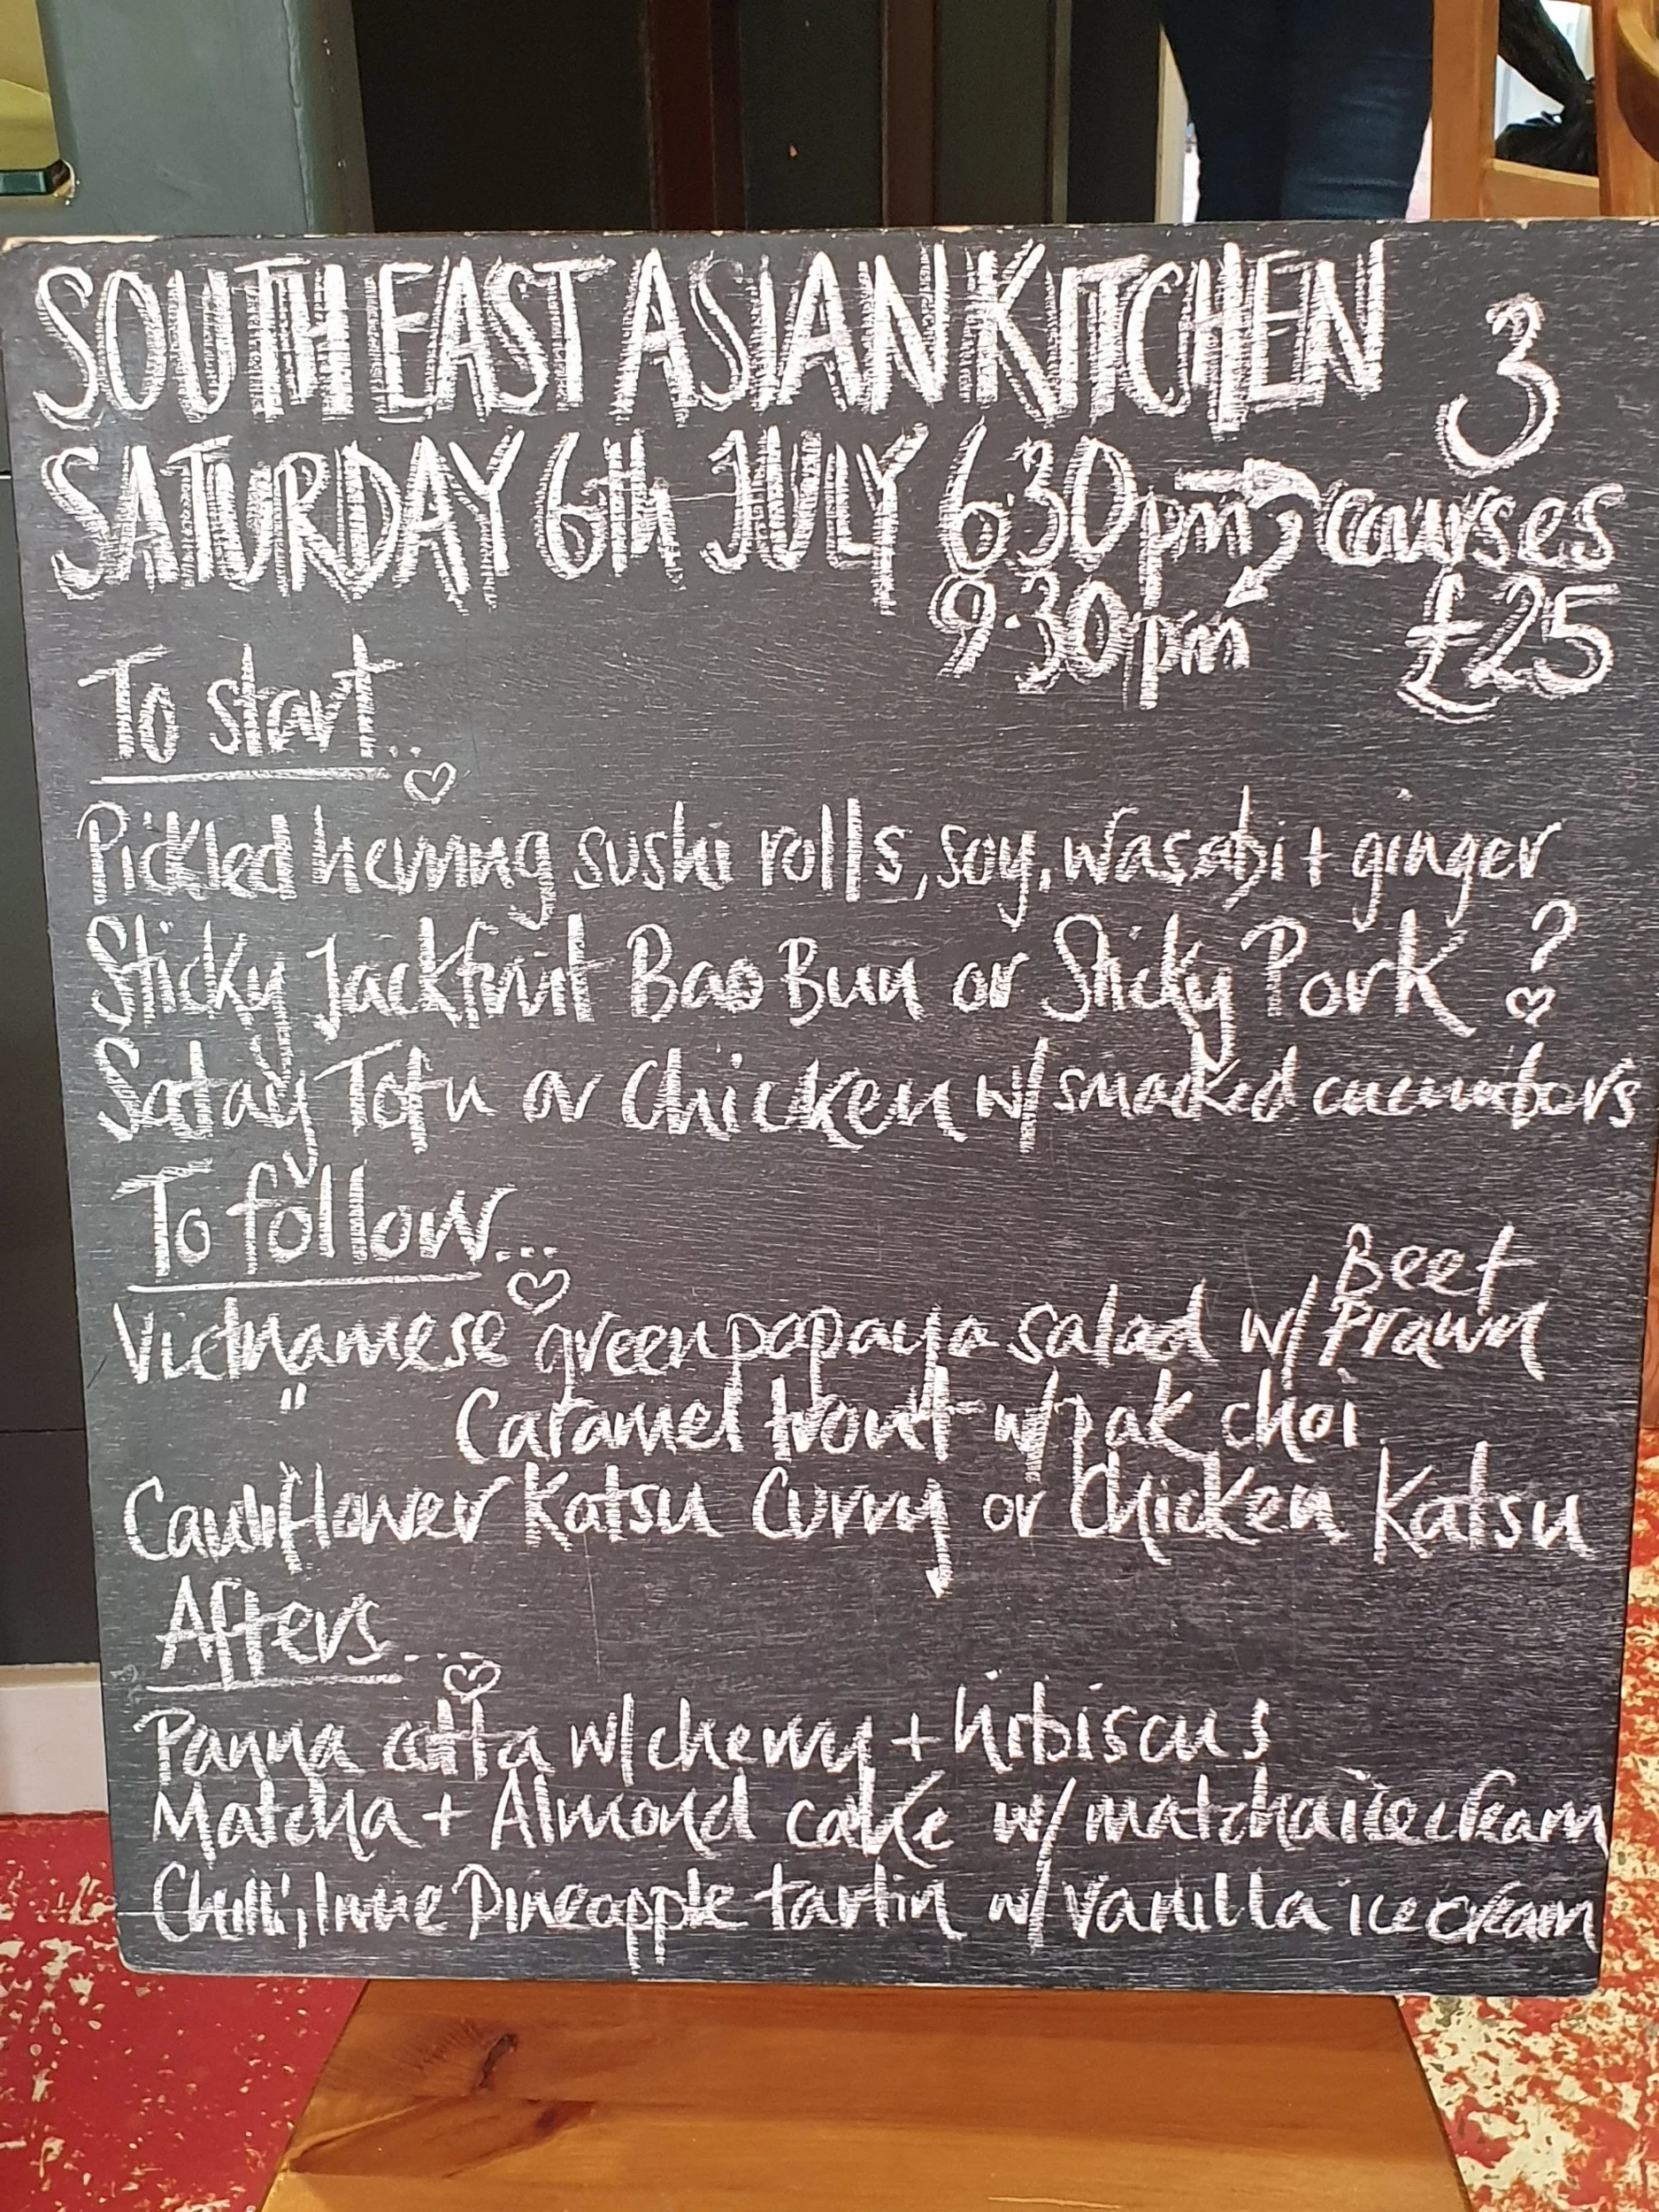 SOUTH EAST ASIAN KITCHEN
SATURDAY 6th JULY 6:30pm → 9:30pm
3 courses
£25
To start...
Pickled herring sushi rolls, soy, wasabi + ginger
Sticky Jackfruit Bao Bun or Sticky Pork ?
Satay Tofu or Chicken w/ smacked cucumbers
To follow...
Vietnamese green papaya salad w/ Beef Prawn
" Caramel trout w/ pak choi
Cauliflower Katsu Curry or Chicken Katsu
Afters....
Panna cotta w/ cherry + hibiscus
Matcha + Almond cake w/ matcha ice cream
Chilli, lime Pineapple tartin w/ vanilla ice cream